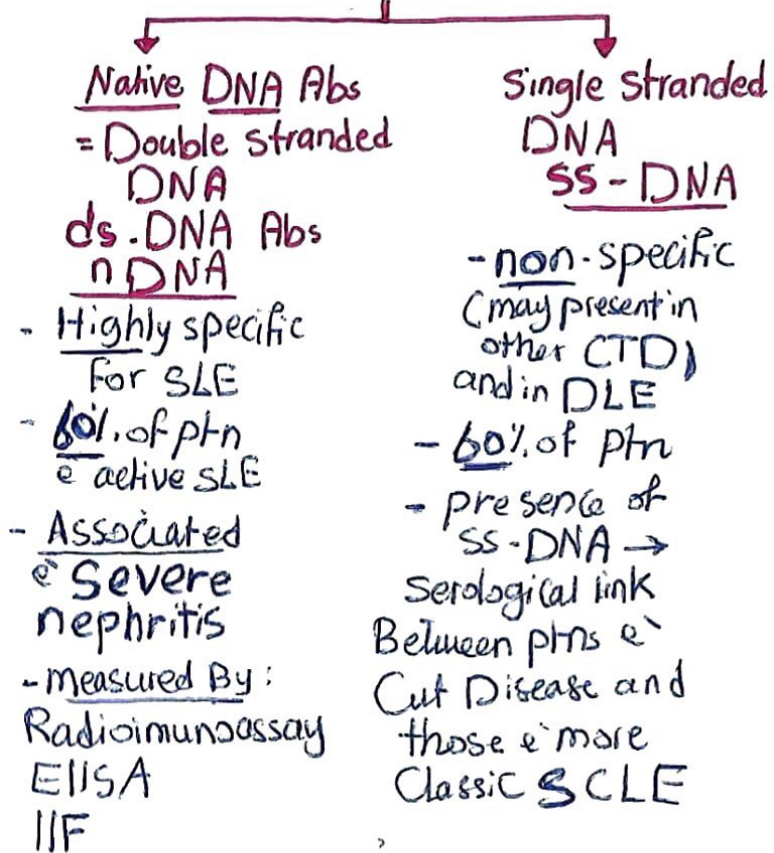 Native DNA Abs
= Double stranded
DNA
ds.DNA Abs
nDNA
- Highly specific
for SLE
- 60%. of ptn
e active SLE
- Associated
e Severe
nephritis
- measured By:
Radioimunoassay
ElISA
IIF
Single stranded
DNA
SS-DNA
- non-specific
(may present in
other CTD)
and in DLE
- 60% of ptn
- presence of
SS-DNA →
Serological link
Between ptns e
Cut Disease and
those e more
Classic SCLE